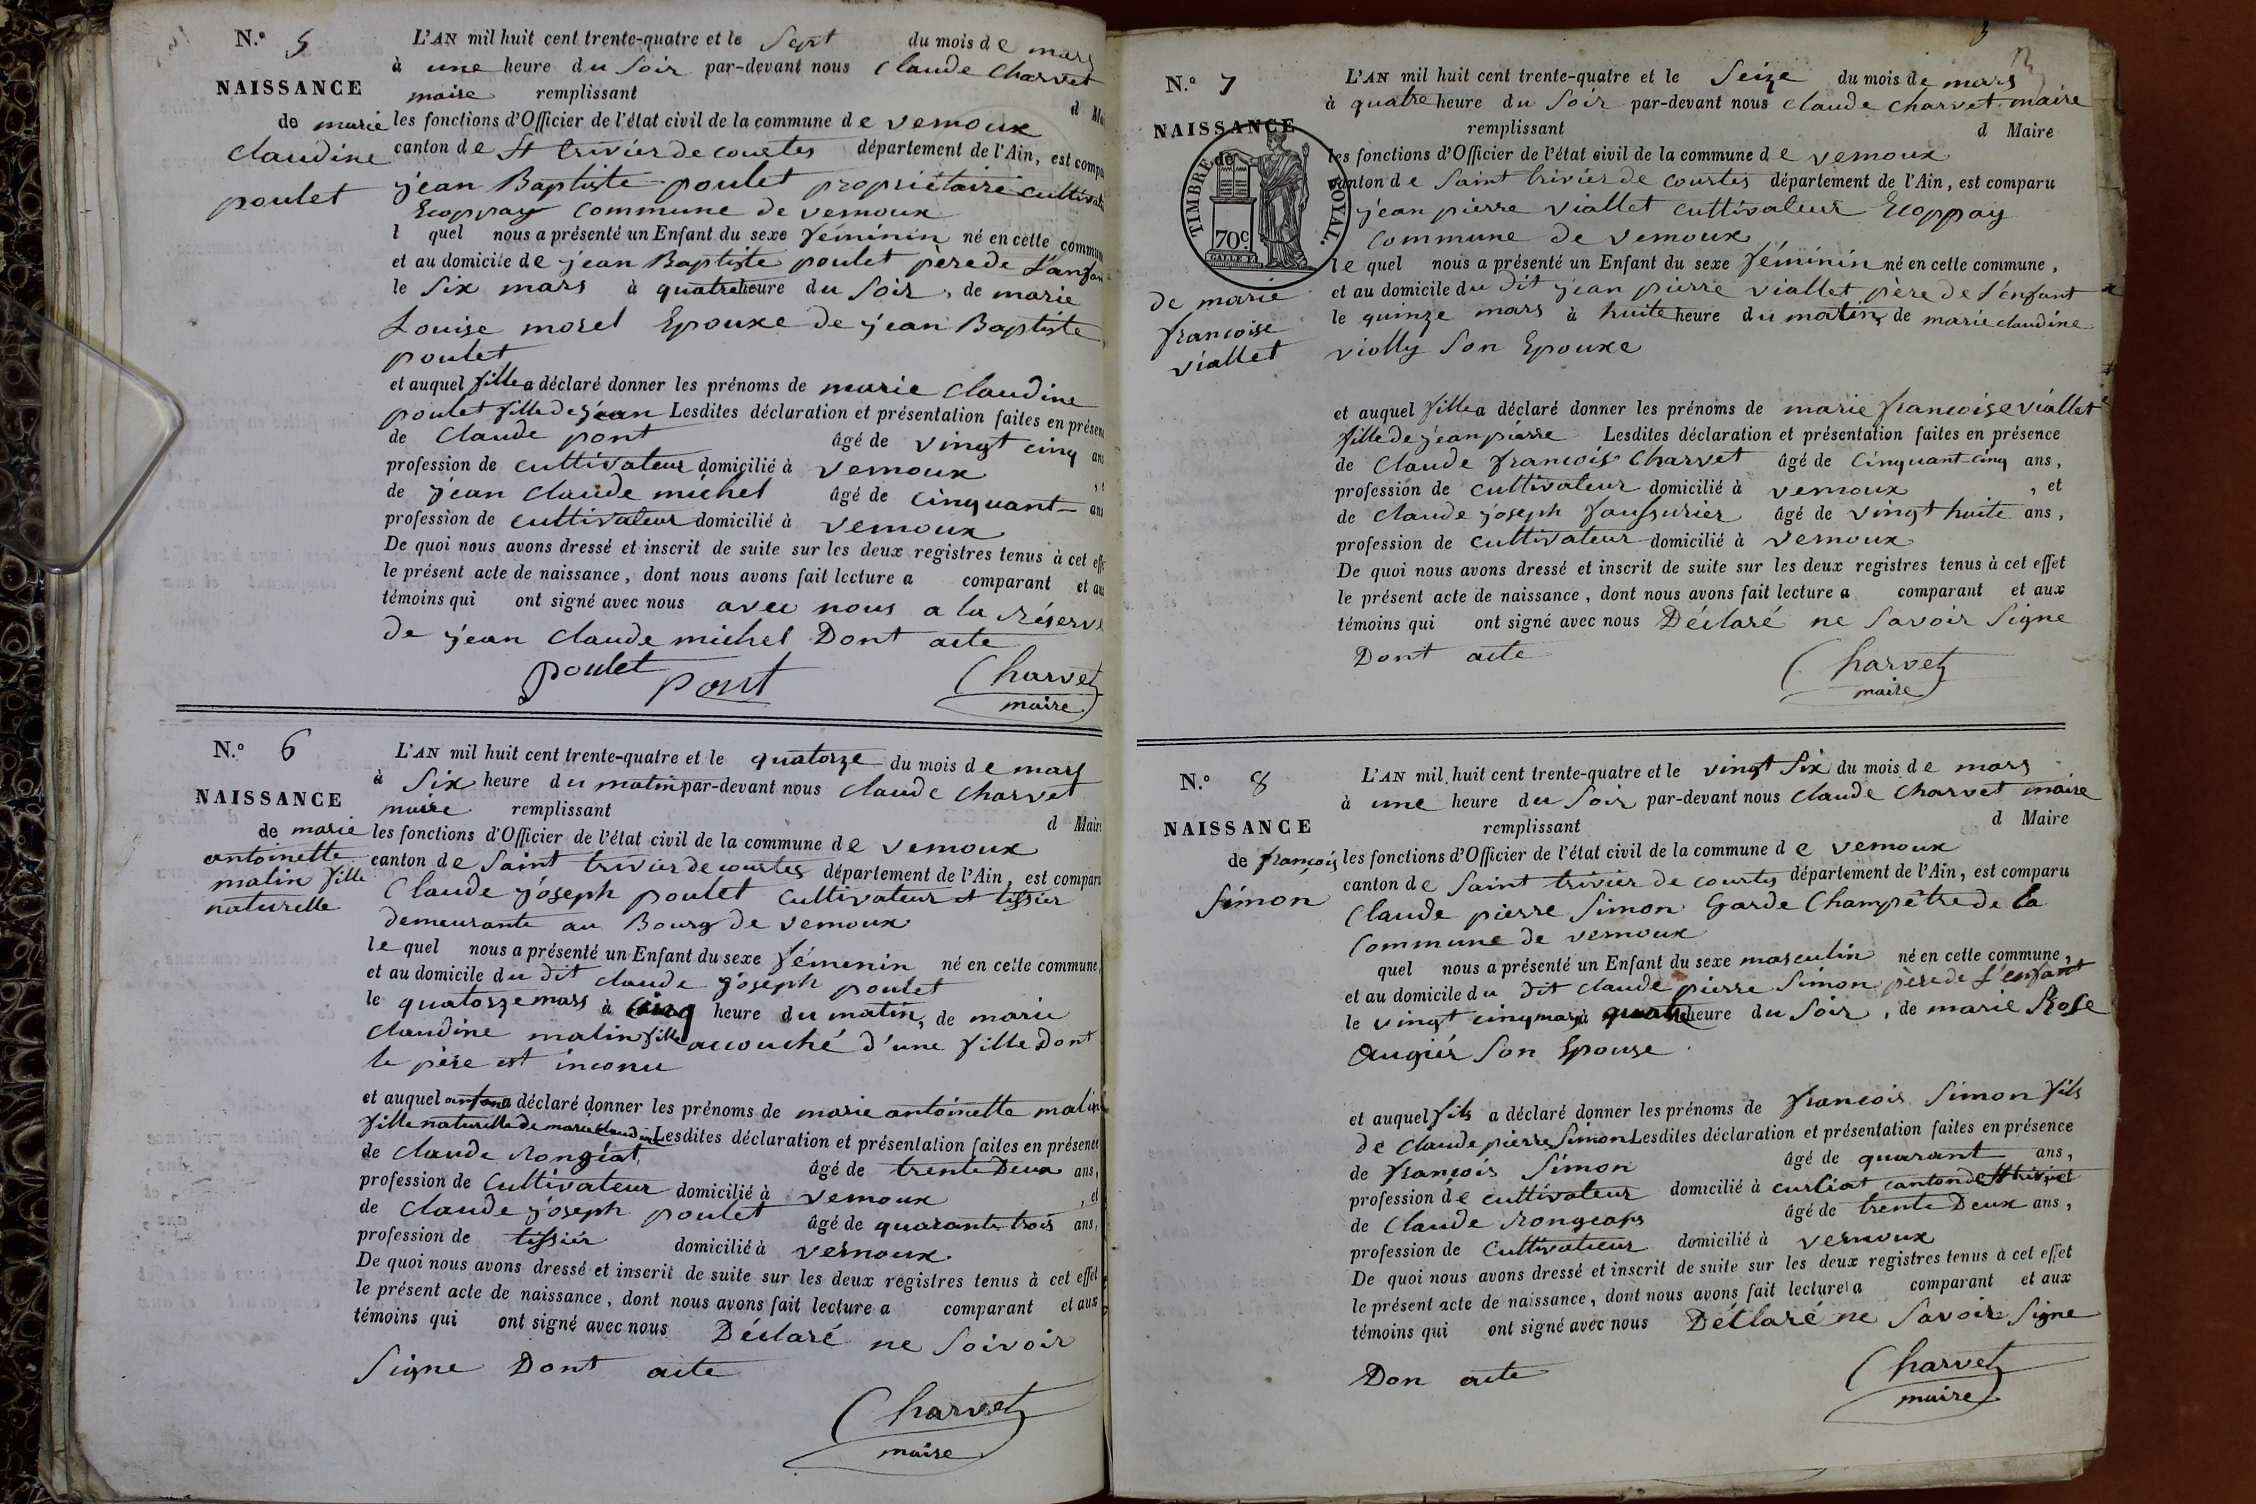 N.º 5
NAISSANCE
de marie
claudine
poulet
L'AN mil huit cent trente-quatre et le Sept du mois de mars
à une heure du Soir par-devant nous Claude Charvet
maire remplissant d Ma
les fonctions d'Officier de l'état civil de la commune de vernoux
canton de St trivier de courtes département de l'Ain, est compa
jean Baptiste poulet propriétaire cultivat
Ecoppay commune de vernoux
l quel nous a présenté un Enfant du sexe féminin né en cette commun
et au domicile de jean Baptiste poulet père de L'anfan
le Six mars à quatre heure du Soir, de marie
Louise morel Epouxe de jean Baptiste
poulet
et auquel fille a déclaré donner les prénoms de marie claudine
poulet fille de jean Lesdites déclaration et présentation faites en présen
de Claude pont âgé de vingt cinq ans
profession de cultivateur domicilié à vernoux
de jean claude michel âgé de cinquant ans
profession de cultivateur domicilié à vernoux
De quoi nous avons dressé et inscrit de suite sur les deux registres tenus à cet eff
le présent acte de naissance, dont nous avons fait lecture a comparant et au
témoins qui ont signé avec nous avec nous a la réserve
de jean claude michel Dont acte
poulet pont Charvet
maire
N.º 6
NAISSANCE
de marie
antoinette
matin fille
naturelle
L'AN mil huit cent trente-quatre et le quatorze du mois de mars
à Six heure du matin par-devant nous claude charvet
maire remplissant d Maire
les fonctions d'Officier de l'état civil de la commune de vernoux
canton de Saint trivier de courtes département de l'Ain, est comparu
Claude joseph poulet cultivateur et tissier
demeurante au Bourg de vernoux
le quel nous a présenté un Enfant du sexe fémenin né en cette commune,
et au domicile du dit claude joseph poulet
le quatorze mars à cinq heure du matin, de marie
claudine matin fille accouché d'une fille Dont
le père est inconu
et auquel enfan a déclaré donner les prénoms de marie antoinette matin
fille naturelle de marie claudine Lesdites déclaration et présentation faites en présence
de claude Rongéat âgé de trente Deux ans,
profession de Cultivateur domicilié à vernoux , et
de claude joseph poulet âgé de quarante trois ans,
profession de tissiér domicilié à vernoux
De quoi nous avons dressé et inscrit de suite sur les deux registres tenus à cet effet
le présent acte de naissance, dont nous avons fait lecture a comparant et aux
témoins qui ont signé avec nous Déclaré ne Soivoir
Signe Dont acte
Charvet
maire
3
N.º 7
NAISSANCE
de
TIMBRE ROYAL.
70c.
de marie
francoise
viallet
L'AN mil huit cent trente-quatre et le Seize du mois de mars
à quatre heure du Soir par-devant nous claude charvet maire
remplissant d Maire
les fonctions d'Officier de l'état civil de la commune de vernoux
canton de Saint trivier de courtes département de l'Ain, est comparu
jean pierre viallet cultivateur Ecoppay
commune de vernoux
le quel nous a présenté un Enfant du sexe féminin né en cette commune,
et au domicile du dit jean pierre viallet père de L'énfant
le quinze mars à huite heure du matin, de marie claudine
violly Son Epouxe
et auquel fille a déclaré donner les prénoms de marie francoise viallet
fille de jean pierre Lesdites déclaration et présentation faites en présence
de Claude francois Charvet âgé de Cinquant cinq ans,
profession de cultivateur domicilié à vernoux , et
de claude joseph faussurier âgé de vingt huite ans,
profession de cultivateur domicilié à vernoux
De quoi nous avons dressé et inscrit de suite sur les deux registres tenus à cet effet
le présent acte de naissance, dont nous avons fait lecture a comparant et aux
témoins qui ont signé avec nous Déclaré ne Savoir Signe
Dont acte
Charvet
maire
N.º 8
NAISSANCE
de françois
Simon
L'AN mil huit cent trente-quatre et le vingt Six du mois de mars
à une heure du Soir par-devant nous claude charvet maire
remplissant d Maire
les fonctions d'Officier de l'état civil de la commune de vernoux
canton de Saint trivier de courtes département de l'Ain, est comparu
Claude pierre Simon Garde Champêtre de la
Commune de vernoux
quel nous a présenté un Enfant du sexe masculin né en cette commune,
et au domicile du dit claude pierre Simon père de L'enfant
le vingt cinq mars à quatre heure du Soir, de marie Rose
Augiér Son Epouse
et auquel fils a déclaré donner les prénoms de francois Simon fils
de claude pierre Simon Lesdites déclaration et présentation faites en présence
de françois Simon âgé de quarant ans,
profession de cultivateur domicilié à curtiat canton de St trivi, et
de Claude Rongeaps âgé de trente Deux ans,
profession de Cultivateur domicilié à vernoux
De quoi nous avons dressé et inscrit de suite sur les deux registres tenus à cet effet
le présent acte de naissance, dont nous avons fait lecture a comparant et aux
témoins qui ont signé avec nous Déclaré ne Savoir Signe
Don acte
Charvet
maire